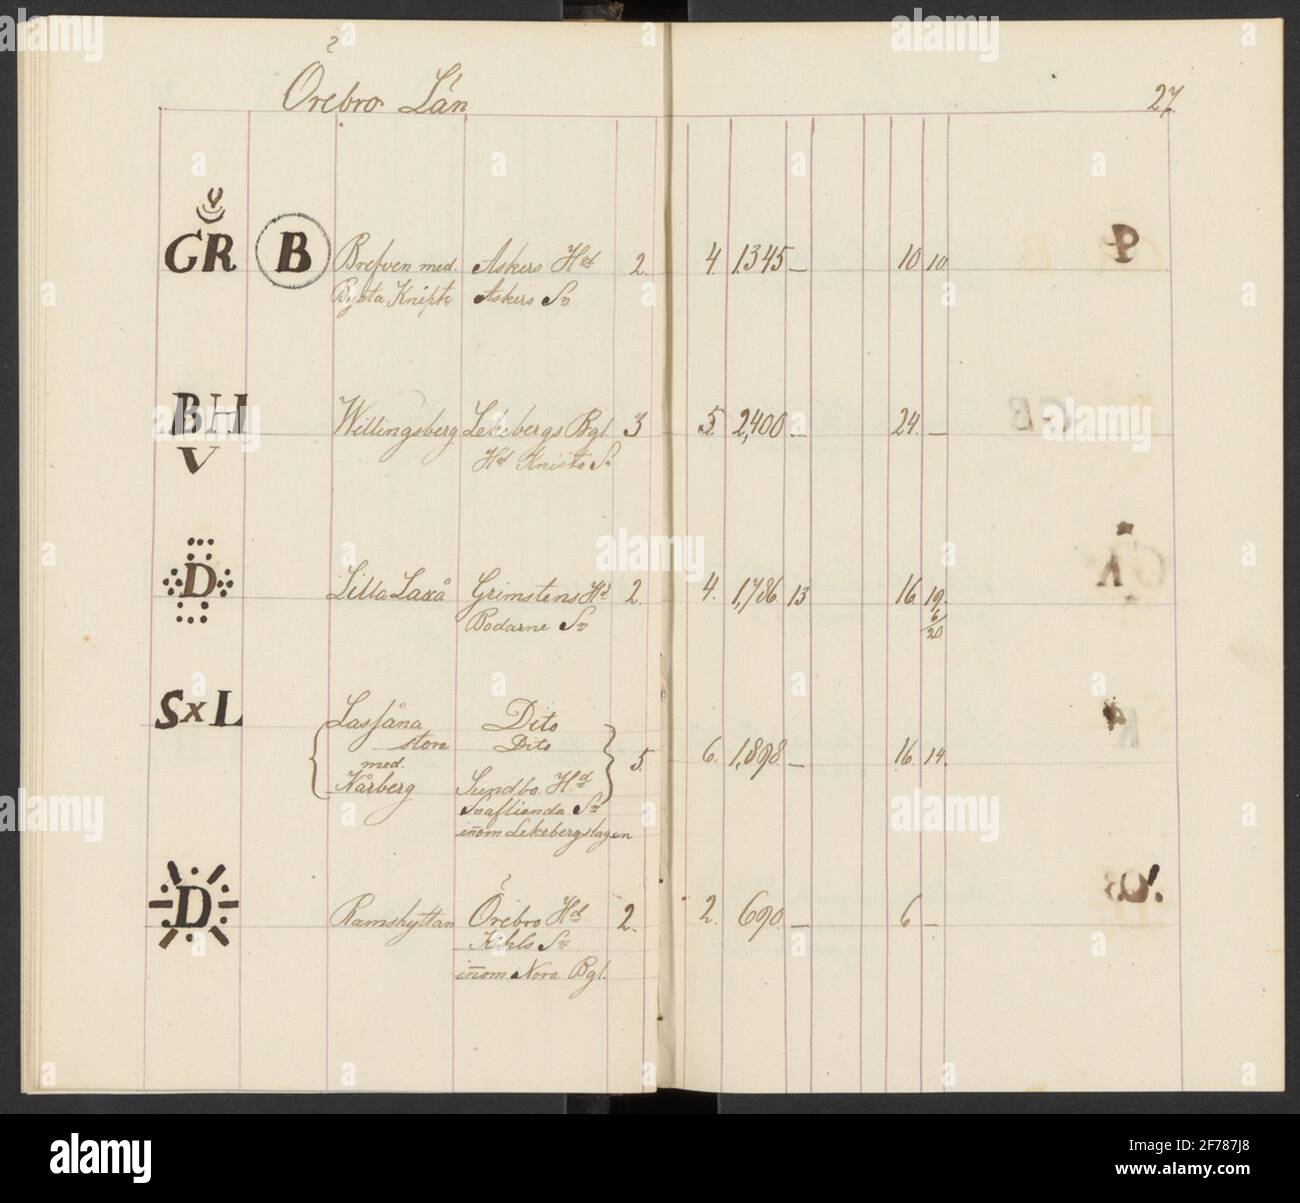 Örebro Län
27
GR B Brefven med Askers Hd 2. 4. 1345 — 10 10
Bysta Knipk Askers Sn
BH Willingsberg Lekebergs Bgl 3 5. 2,400 — 24. —
V Hd Knista Sn
D Lilla Laxå Grimstens Hd 2. 4. 1,786 13 16 19
Bodarne Sn 6/20
SxL Lassåna Dito
stora Dito 5. 6. 1,898 — 16 14.
med
Kårberg Sundbo Hd
Snaflienda Sn
inom Lekebergslagen
D Ramshyttan Örebro Hd 2. 2. 690 — 6 —
Kihls Sn
inom Nora Bgl.
alamy
Image ID: 2F787J8
www.alamy.com